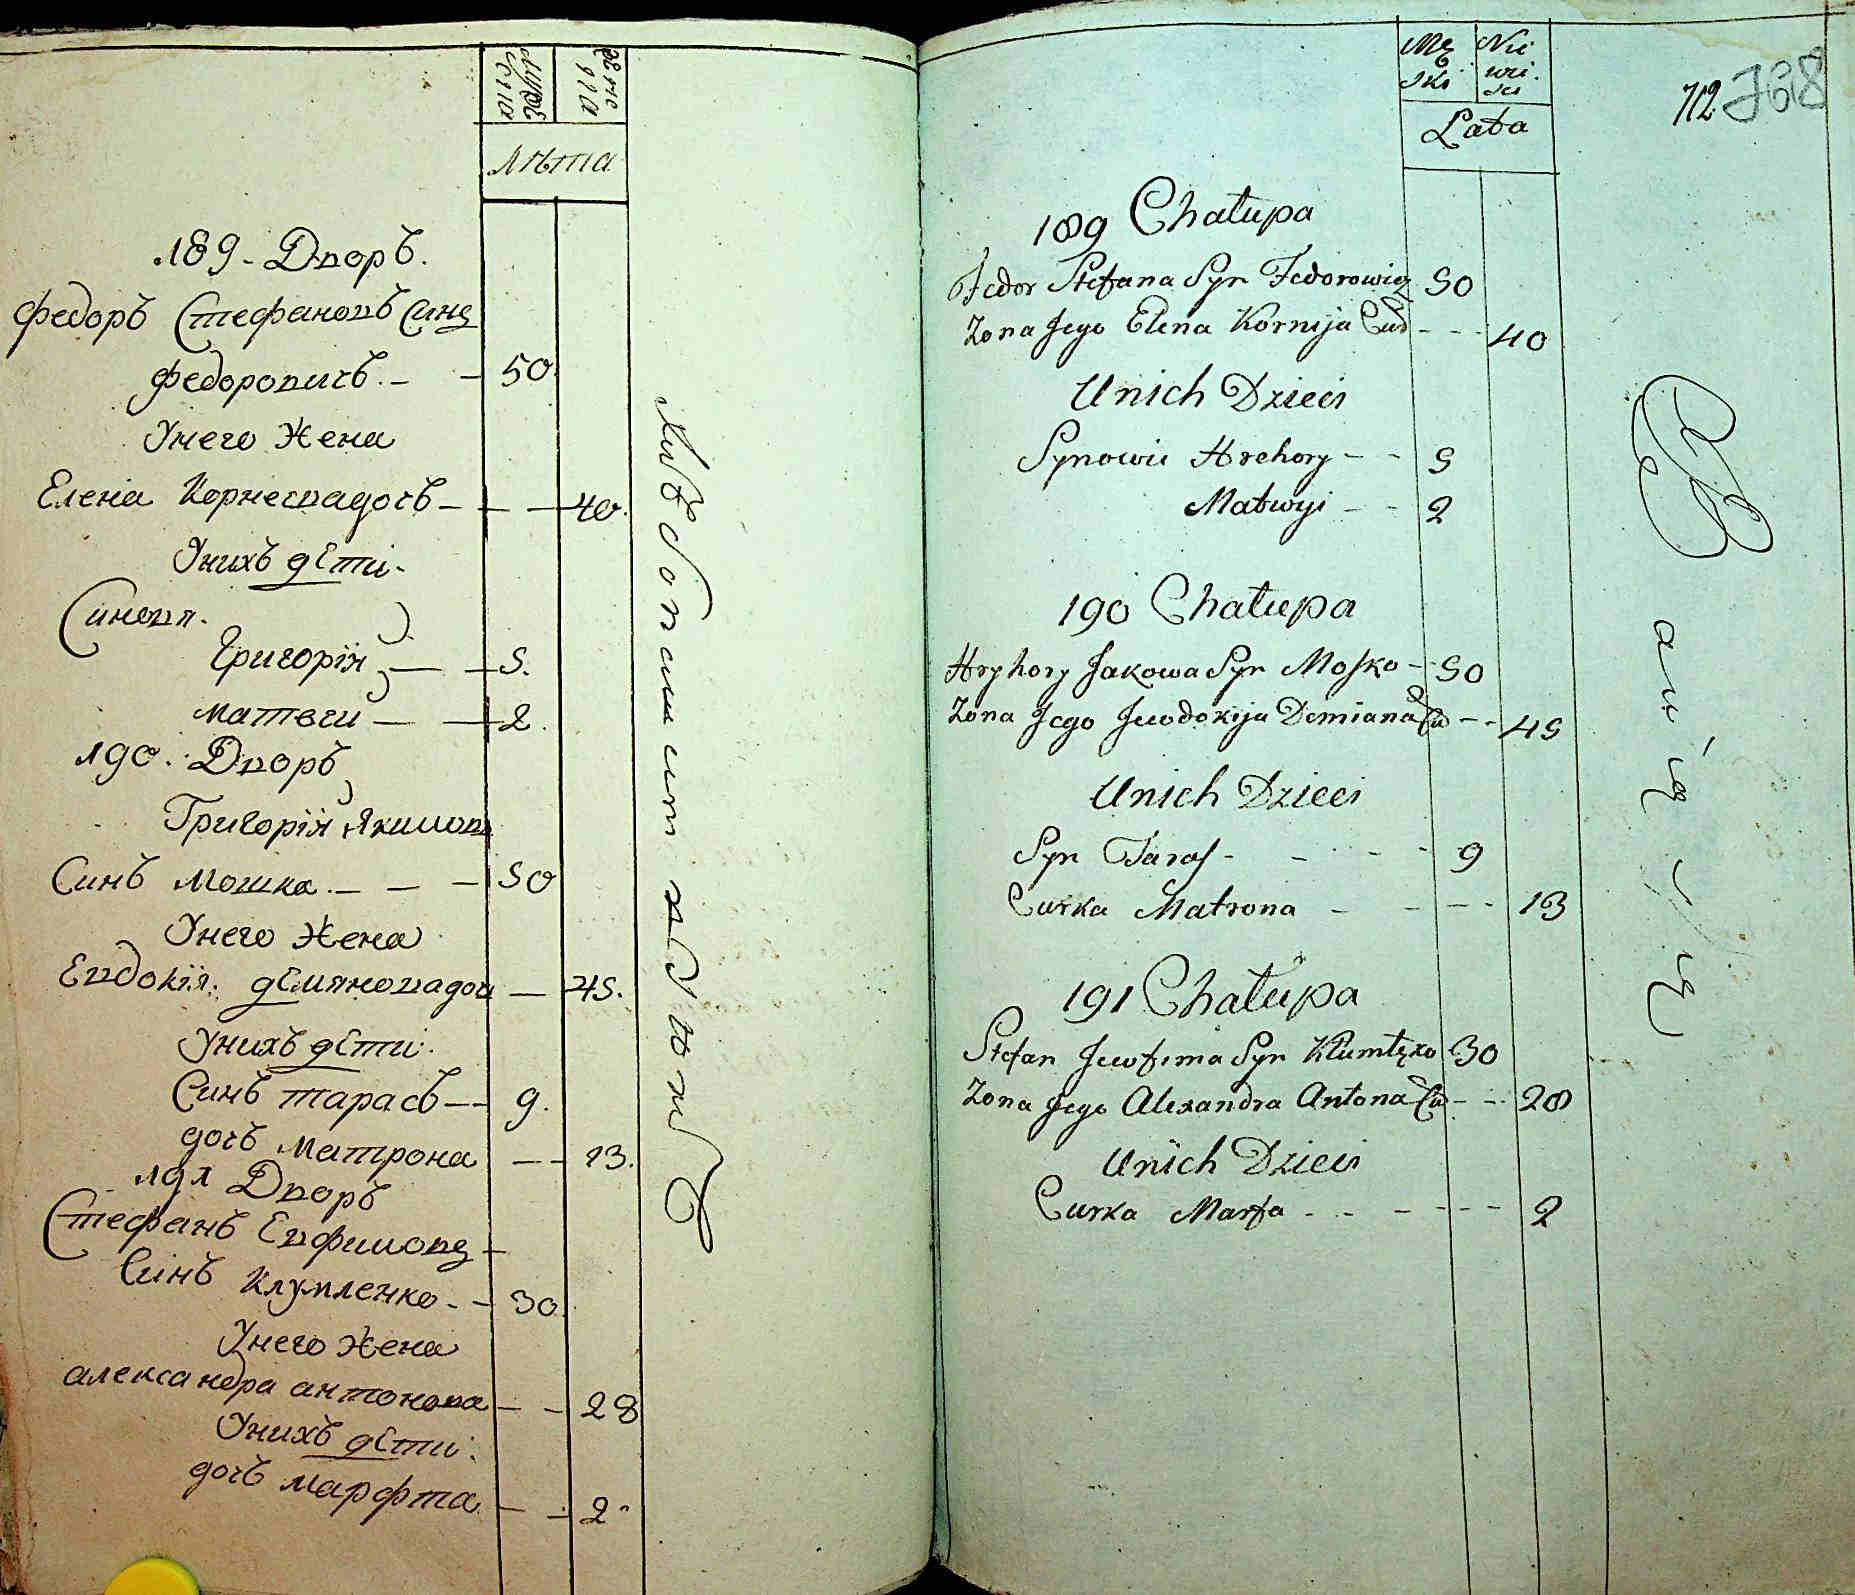 Мужеска
женска
Лѣта
189 - Дворъ.
Федоръ Стефановъ Синъ
Федоровичъ. - - 50.
Унего Жена
Елена Корнеевадочъ - - - 40.
Унихъ дѣти.
Синовя.
Григорій - - 5.
Матвеи - - 2.
190. Дворъ
Григорій Якимовъ
Синъ Мошка. - - - 50
Унего Жена
Евдокія. демяновадоч - 45.
Унихъ дети.
Синъ тарасъ - - 9.
дочъ Матрона - - 13.
191 Дворъ
Стефанъ Евфимовъ -
Синъ Клумленко. - - 30.
Унего Жена
александра антонова - - 28
Унихъ дети:
дочъ Марфта - - 2.
Męski
Niewieści
712 768
Lata
189 Chałupa
Fedor Stefana Syn Fedorowicz 50
Zona Jego Elena Kornija Cud - - - 40
Unich Dzieci
Synowie Hrehory - - 5
Matwyi - - 2
190 Chałupa
Hryhory Jakowa Syn Mosko - - 50
Zona Jego Jewdokija Demiana Cud - - 45
Unich Dzieci
Syn Taras - - - - 9
Curka Matrona - - - - 13
191 Chałupa
Stefan Jewfima Syn Klumlęko 30
Zona Jego Alexandra Antona Cud - - 28
Unich Dzieci
Curka Marfa - - - - - - 2